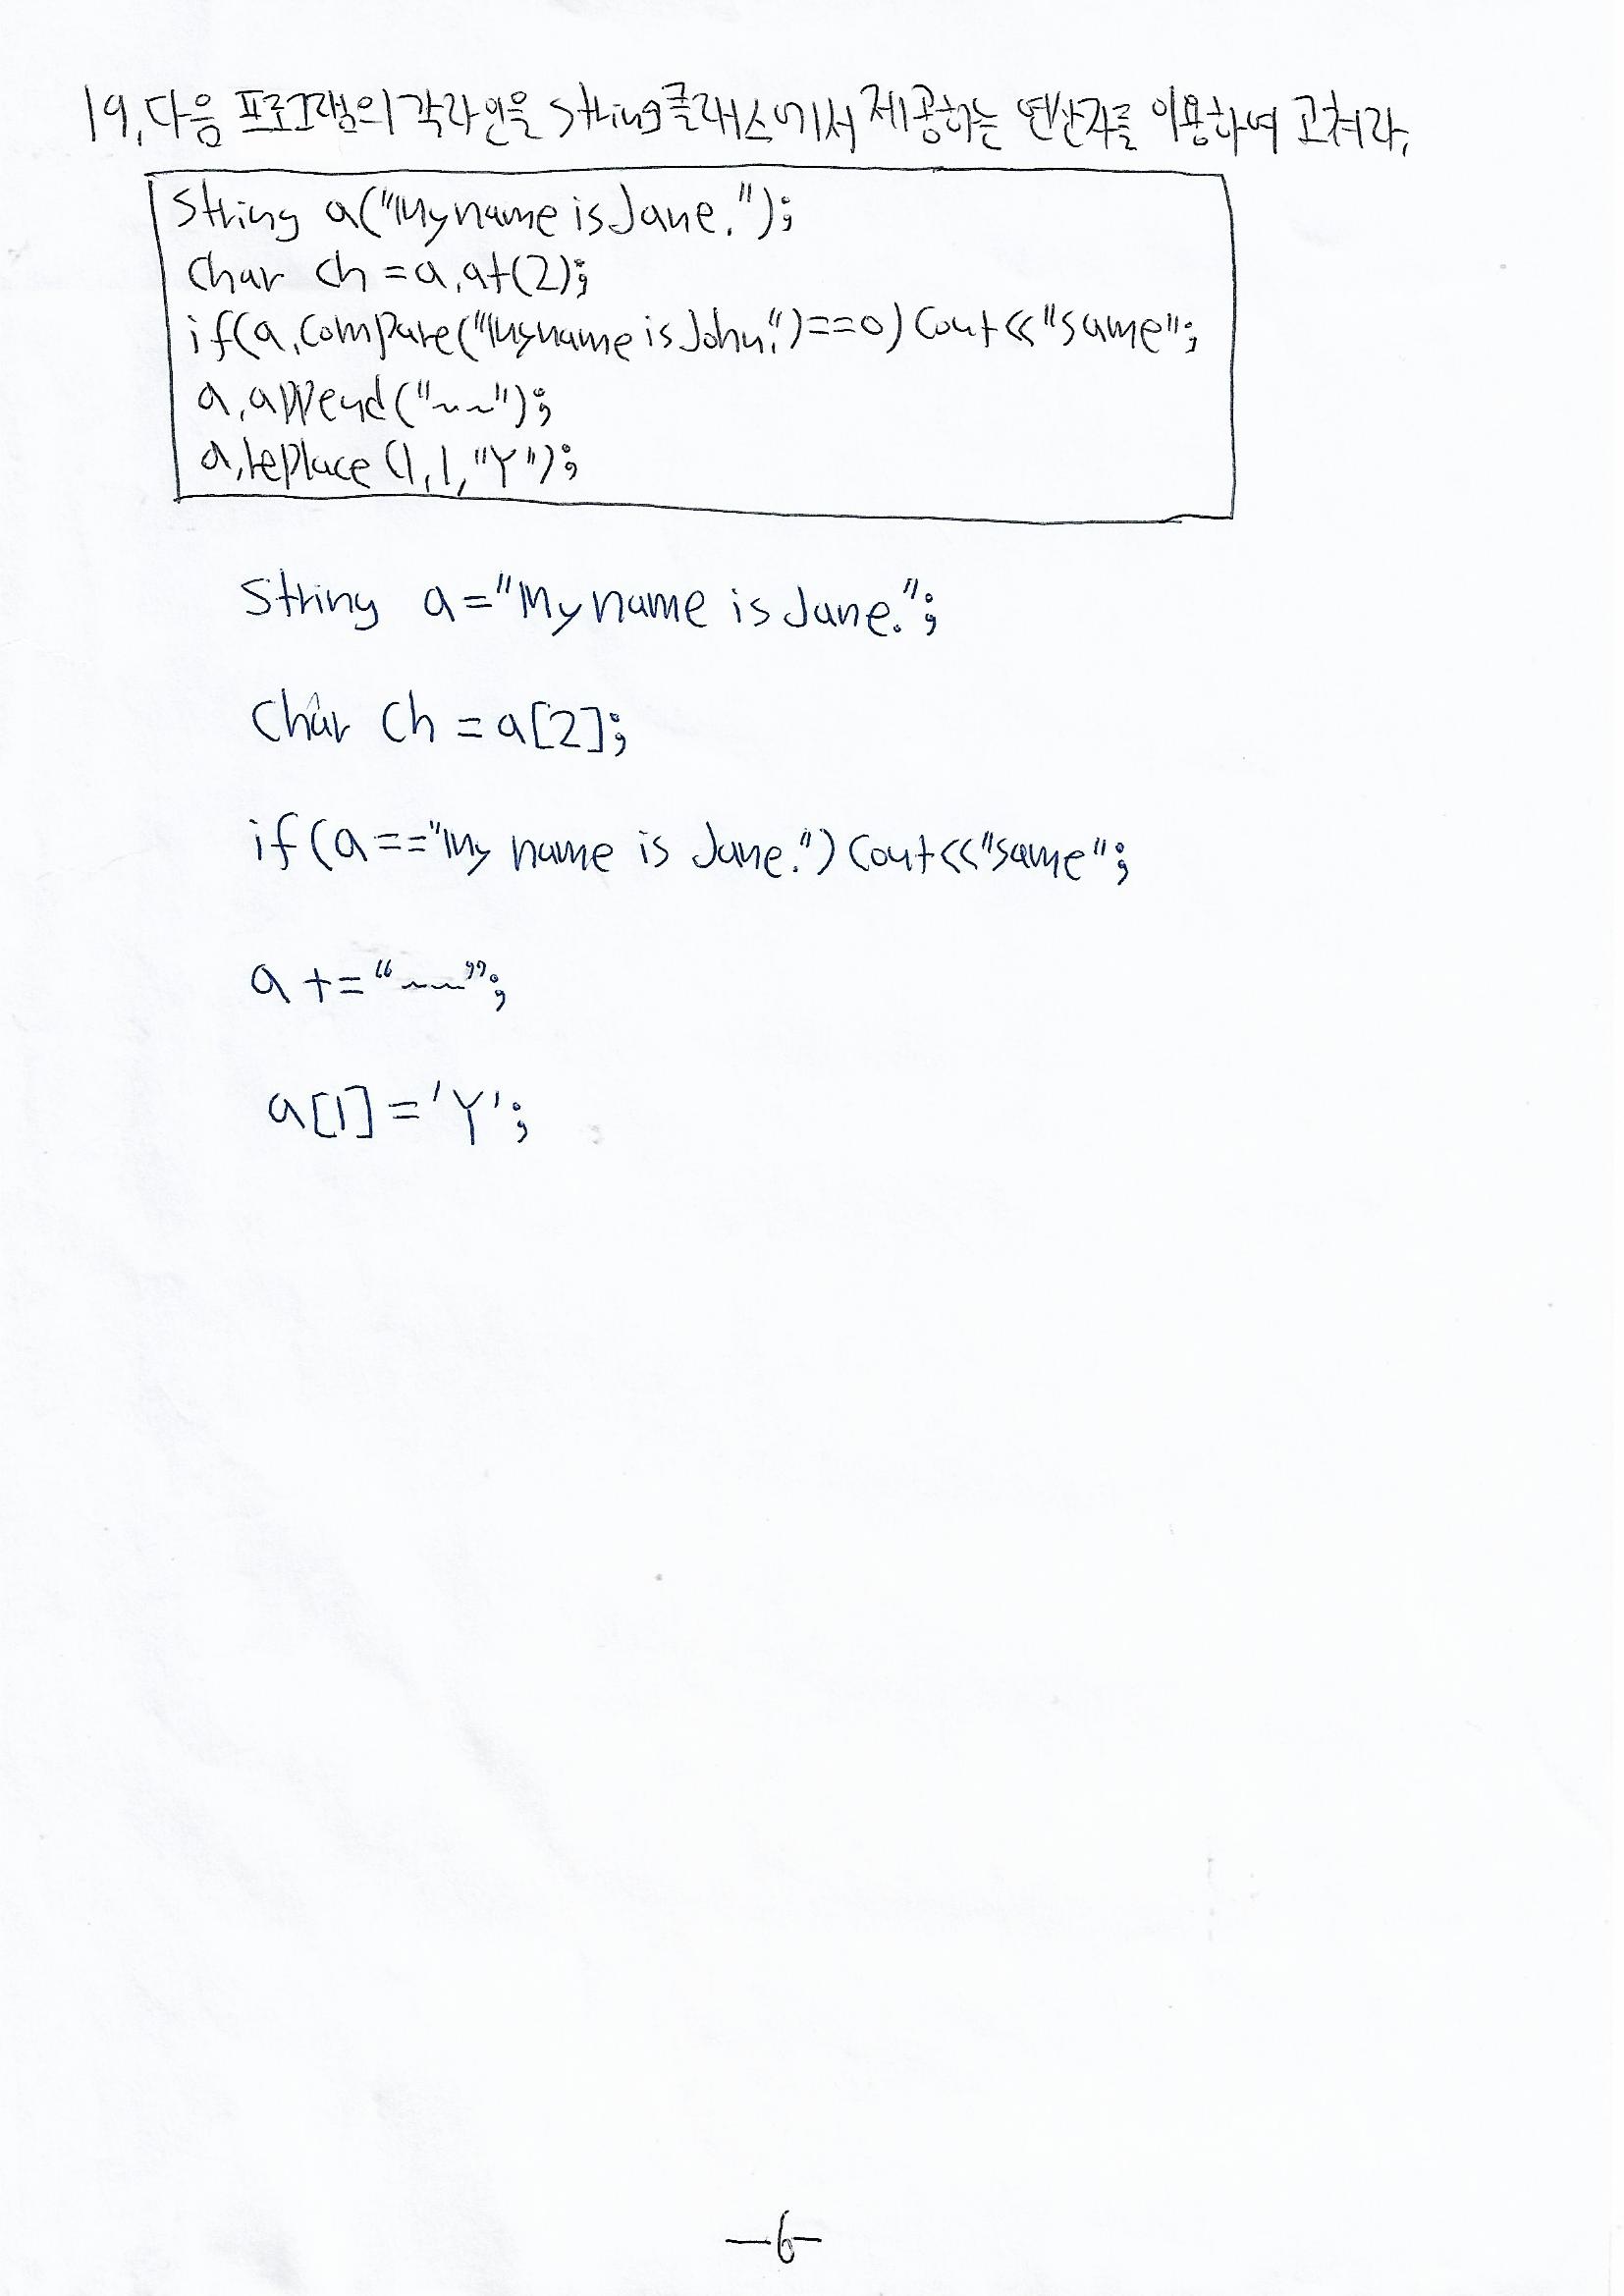 19. 다음 프로그램의 각 라인을 string클래스에서 제공하는 연산자를 이용하여 고쳐라.
String a("My name is Jane.");
Char ch = a.at(2);
if(a.compare("My name is John.")==0) Cout<<"same";
a.append("~~");
a.replace(1,1,"Y");
String a="My name is Jane.";
Char Ch = a[2];
if(a=="My name is Jane.") Cout<<"same";
a += "~~";
a[1]='Y';
-6-